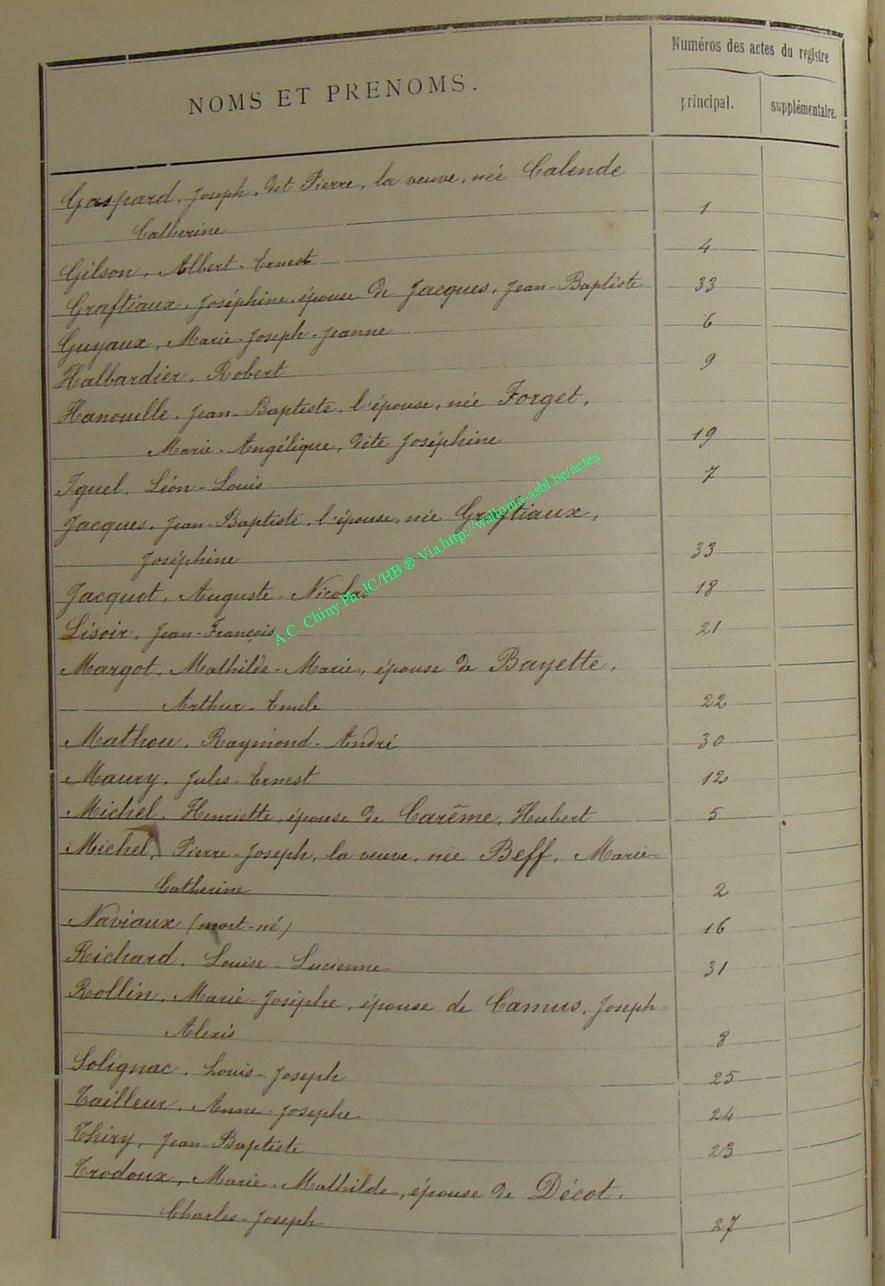 Numéros des actes du registre
NOMS ET PRENOMS.
principal. supplémentaire.
Gaspard, Joseph, dit Pierre, la veuve, née Calende
Catherine 1
Gilson, Albert-Ernest 4
Graftiaux, Joséphine, épouse de Jacques, Jean-Baptiste 33
Guyaux, Marie-Joseph-Jeanne 6
Halbardier, Robert 9
Hanouille, Jean-Baptiste, l'épouse, née Forget,
Marie-Angélique, dite Joséphine 19
Iguel, Léon-Louis 7
Jacques, Jean-Baptiste, l'épouse, née Graftiaux,
Joséphine 33
Jacquot, Auguste-Nicolas 18
Lisoir, Jean-François 21
Margot, Mathilde-Marie, épouse de Bayette,
Arthur-Emile 22
Mathou, Raymond-André 30
Maury, Jules-Ernest 12
Michel, Henriette, épouse de Carême, Hubert 5
Michel, Pierre-Joseph, la veuve, née Beff, Marie-
Catherine 2
Naviaux (mort-né) 16
Richard, Louise-Lucienne 31
Rollin, Marie-Josèphe, épouse de Camus, Joseph-
Alexis 8
Solignac, Louis-Joseph 25
Tailleur, Anne-Josèphe 24
Thiry, Jean-Baptiste 23
Trodoux, Marie-Mathilde, épouse de Décot,
Charles-Joseph 27
A.C. Chiny Ph. JC/HB ® Via http://wallonia-asbl.be/actes